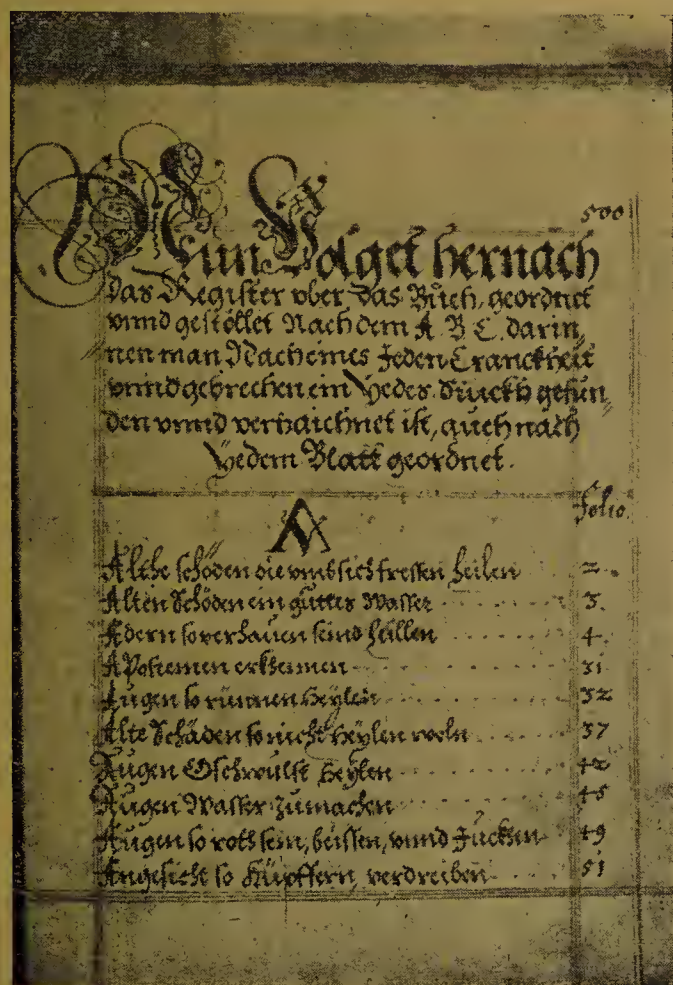 500
Nun Volget hernach
das Register vber das Buech, geordnet
vnnd gestöllet Nach dem A B C. darin,
nen man Nach eines Jeden Cranckheit
vnnd gebrechen ein Yedes Stuckh gefun,
den vnnd verzaichnet ist, auch nach
Yedem Blatt geordnet.
Folio.
A
Althe schöden die vmb sich fressen heilen 2.
Alten Schöden ein guttes Wasser 3.
Adern so verhauen seind heillen 4.
Apostemen erkhennen 31
Augen so rünnen heylen 32
Alte Schäden so nicht heylen weln 37
Augen Gschwulst heylen 42
Augen Wasser zumachen 45
Augen so rott sein, beissen, vnnd Jucken 49
Angesicht so Küpffern, verdreiben 51